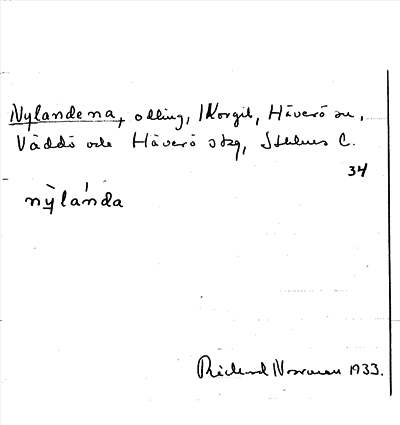 Nylandena, odling, i Korgil, Häverö sn,
Väddö och Häverö skg, Sthlms l.
34
nỳlánda
Rickard Norrman 1933.